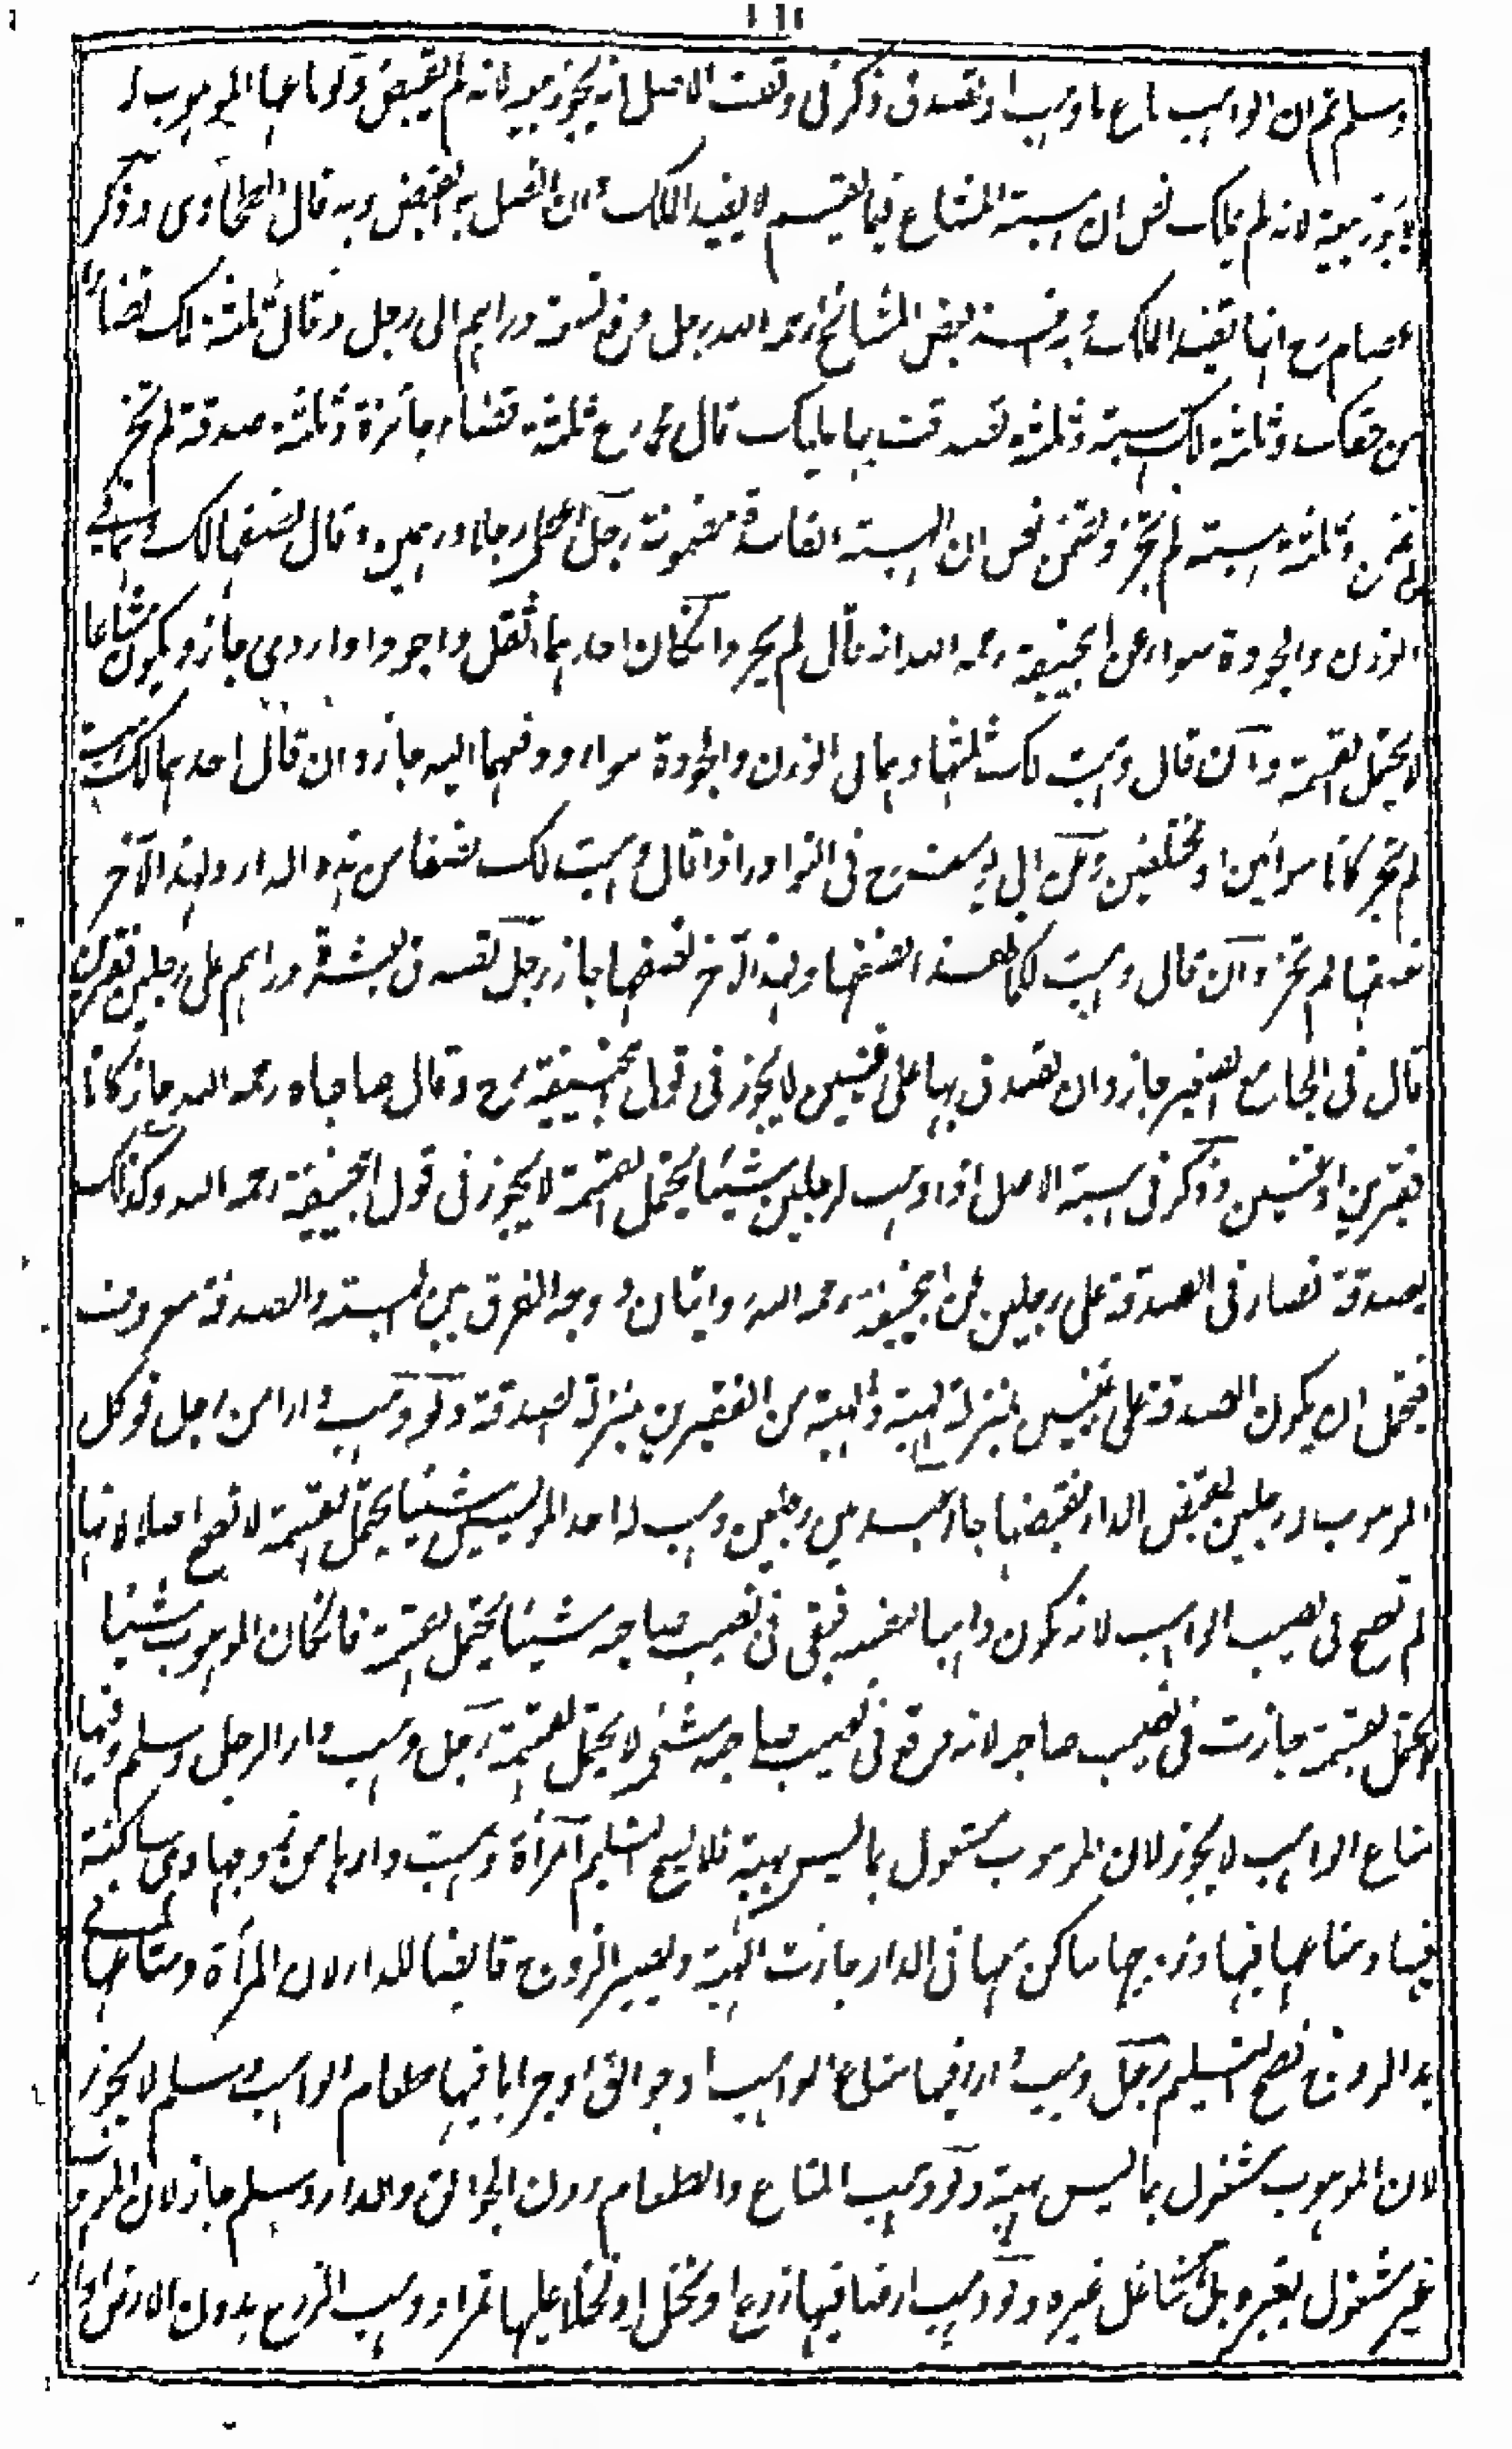 وسلم ثم ان الواهب باع ما وهب او تصدق ذكر فى وقف الاصل انه يجوز بيعه لانه لم يقبض ولو باعها الموهوب له
لا يجوز بيعه لانه لم يملك نص ان هبة المشاع فيما يقسم لا يفيد الملك وان اتصل به القبض وبه قال الطحاوى وذكر
عصام رح انها تفيد الملك وبه بعض المشائخ رحمه الله رجل دفع تسعة دراهم الى رجل وقال ثلثة لك قضاء
من حقك وثلثة لك هبة وثلثة تصدقت بها عليك قال محمد رح ثلثة قضاء جائزة وثلثة صدقة لم تجز
لم تضمن وثلثة هبة لم تجز وتضمن نص ان الهبة الفاسدة مضمونة رجل اعطى رجلا درهمين وقال نصفهما لك وهما فى
الوزن والجودة سواء عن ابيحنيفة رحمه الله انه قال لم يجز وانكان احدهما اثقل واجود او اردى جاز ويكون مشاعا
لا يحتمل القسمة وان قال وهبت لك ثلثهما وهما فى الوزن والجودة سواء ودفعهما اليه جاز وان قال احدهما لك هبة
لم يجز كانا سوائين او مختلفين وعن ابى يوسف رح فى النوادر اذا قال وهبت لك نصفا من هذه الدار ولهذا الآخر
نصفها لم تجز وان قال وهبت لكما لهذا نصفها ولهذا الآخر نصفها جاز رجل تصدق بعشرة دراهم على رجلين فقيرين
قال فى الجامع الصغير جاز وان تصدق بها على غنيين لا يجوز فى قول ابيحنيفة رح وقال صاحباه رحمه الله جاز كانا
فقيرين او غنيين وذكر فى هبة الاصل اذا وهب لرجلين شيئا يحتمل القسمة لا يجوز فى قول ابيحنيفة رحمه الله وكذلك
الصدقة فصار فى الصدقة على رجلين عن ابيحنيفة رحمه الله روايتان ووجه الفرق بين الهبة والصدقة معروف
فيحتمل ان يكون الصدقة على غنيين بمنزلة الهبة والهبة من الفقيرين بمنزلة الصدقة ولو وهب دارا من رجل فوكل
الموهوب له رجلين بقبض الدار فقبضاها جاز عبد بين رجلين وهب له احد الموليين شيئا يحتمل القسمة لا تصح اصلا لانها
لم تصح فى نصيب الواهب لانه يكون واهبا لنفسه فبقى فى نصيب صاحبه شيئا يحتمل القسمة فانكان الموهوب شيئا
لا يحتمل القسمة جازت فى نصيب صاحبه لانه وقع فى نصيب صاحبه شئ لا يحتمل القسمة رجل وهب دارا لرجل وسلم وفيها
متاع الواهب لا يجوز لان الموهوب مشغول بما ليس بهبة فلا يصح التسليم امرأة وهبت دارها من زوجها وهى ساكنة
فيها ومتاعها فيها وزوجها ساكن معها فى الدار جازت الهبة ويصير الزوج قابضا للدار لان المرأة ومتاعها فى
يد الزوج فصح التسليم رجل وهب دارا فيها متاع الواهب او جوالق او جرابا فيها طعام الواهب وسلم لا يجوز
لان الموهوب مشغول بما ليس بهبة ولو وهب المتاع والطعام دون الجوالق والدار وسلم جاز لان الموهوب
غير مشغول بغيره بل شاغل غيره ولو وهب ارضا فيها زرع او نخل او نخلا عليها تمر او وهب الزرع بدون الارض او